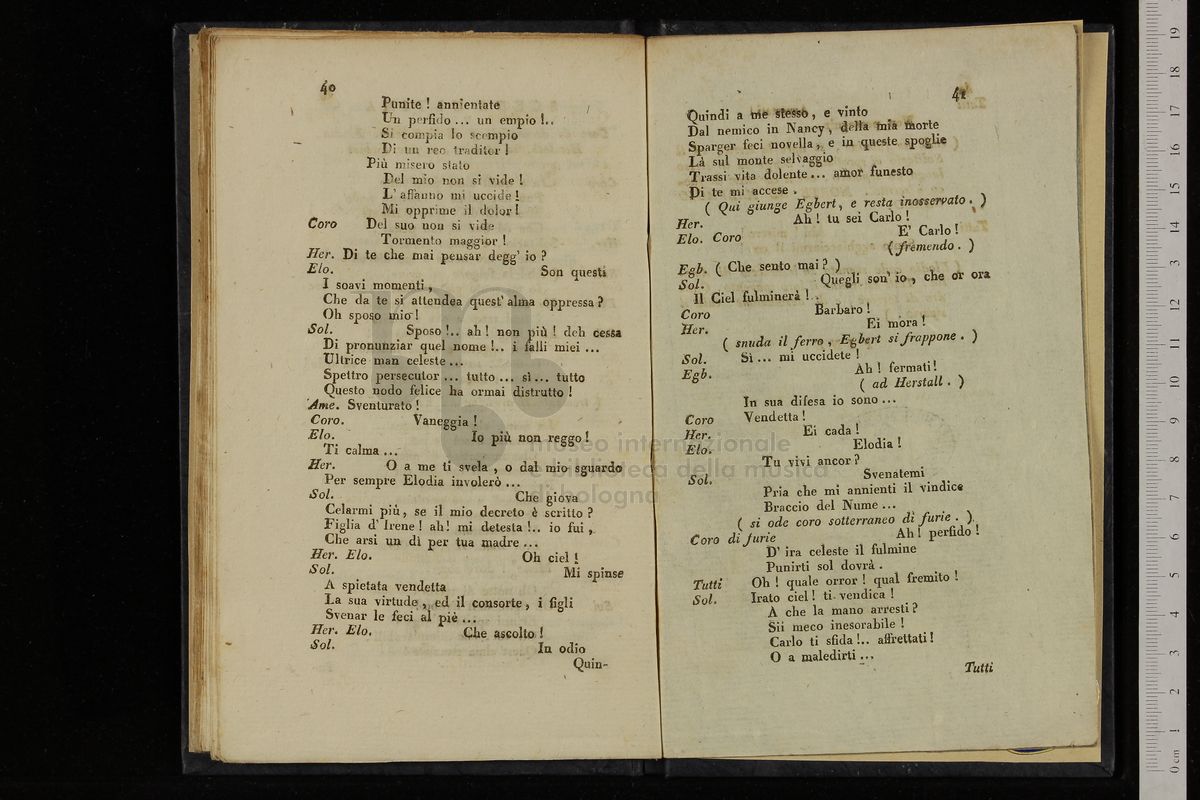 40
Punite ! annientate
Un perfido ... un empio !..
Si compia lo scempio
Di un reo traditor !
Più misero stato
Del mio non si vide !
L' affanno mi uccide !
Mi opprime il dolor !
Coro Del suo non si vide
Tormento maggior !
Her. Di te che mai pensar degg' io ?
Elo. Son questi
I soavi momenti ,
Che da te si attendea quest' alma oppressa ?
Oh sposo mio !
Sol. Sposo !.. ah ! non più ! deh cessa
Di pronunziar quel nome !.. i falli miei ...
Ultrice man celeste ...
Spettro persecutor ... tutto ... sì ... tutto
Questo nodo felice ha ormai distrutto !
Ame. Sventurato !
Coro. Vaneggia !
Elo. Io più non reggo !
Ti calma ...
Her. O a me ti svela , o dal mio sguardo
Per sempre Elodia involerò ...
Sol. Che giova
Celarmi più, se il mio decreto è scritto ?
Figlia d' Irene ! ah! mi detesta !.. io fui ,
Che arsi un dì per tua madre ...
Her. Elo. Oh ciel !
Sol. Mi spinse
A spietata vendetta
La sua virtude , ed il consorte , i figli
Svenar le feci al piè ...
Her. Elo. Che ascolto !
Sol. In odio
Quin-
41
Quindi a me stesso , e vinto
Dal nemico in Nancy , della mia morte
Sparger feci novella , e in queste spoglie
Là sul monte selvaggio
Trassi vita dolente ... amor funesto
Di te mi accese .
( Qui giunge Egbert, e resta inosservato . )
Her. Ah ! tu sei Carlo !
Elo. Coro E' Carlo !
( fremendo . )
Egb. ( Che sento mai ? )
Sol. Quegli son' io , che or ora
Il Ciel fulminerà ! .
Coro Barbaro !
Her. Ei mora !
( snuda il ferro , Egbert si frappone . )
Sol. Sì ... mi uccidete !
Egb. Ah ! fermati !
( ad Herstall . )
In sua difesa io sono ...
Coro Vendetta !
Her. Ei cada !
Elo. Elodia !
Tu vivi ancor ?
Sol. Svenatemi
Pria che mi annienti il vindice
Braccio del Nume ...
( si ode coro sotterraneo di furie . )
Coro di furie Ah ! perfido !
D' ira celeste il fulmine
Punirti sol dovrà .
Tutti Oh ! quale orror ! qual fremito !
Sol. Irato ciel ! ti vendica !
A che la mano arresti ?
Sii meco inesorabile !
Carlo ti sfida !.. affrettati !
O a maledirti ...
Tutti
museo internazionale
e biblioteca della musica
di bologna
0 cm 1 2 3 4 5 6 7 8 9 10 11 12 13 14 15 16 17 18 19